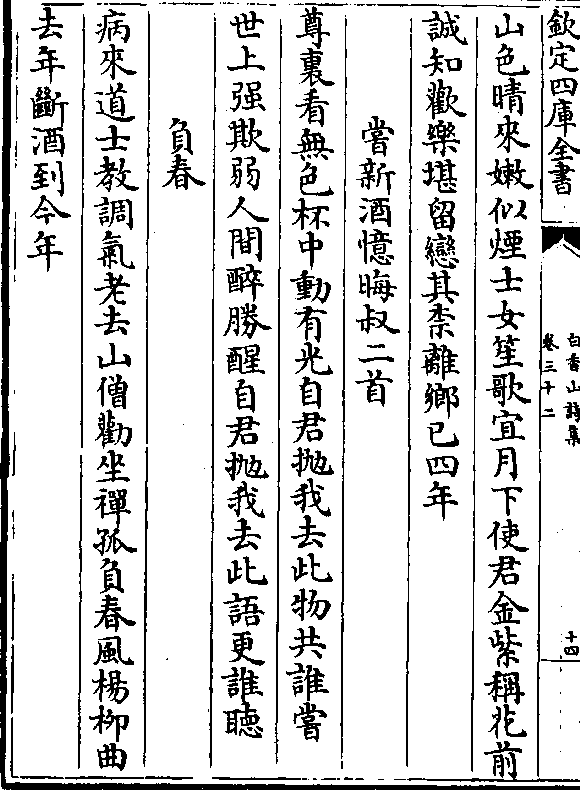 欽定四庫全書
白香山詩集
卷三十二
十四
山色晴來嫩似煙士女笙歌宜月下使君金紫稱花前
誠知歡樂堪留戀其柰離鄉已四年
嘗新酒憶晦叔二首
尊裏看無色杯中動有光自君拋我去此物共誰嘗
世上强欺弱人間醉勝醒自君拋我去此語更誰聴
負春
病來道士教調氣老去山僧勸坐禪孤負春風楊柳曲
去年斷酒到今年